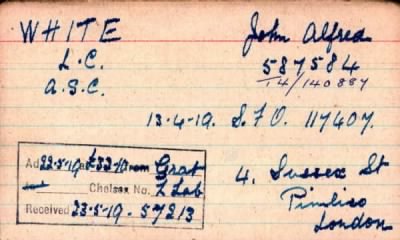 WHITE John Alfred
L.C. 587584
A.S.C. T4/140887
13-4-19. S.F.O. 117407.
Ad 22-5-19 at £33-10 from Grat
Chelsea No. Z Lab
Received 23-5-19 - 57213
4. Sussex St
Pimlico
London